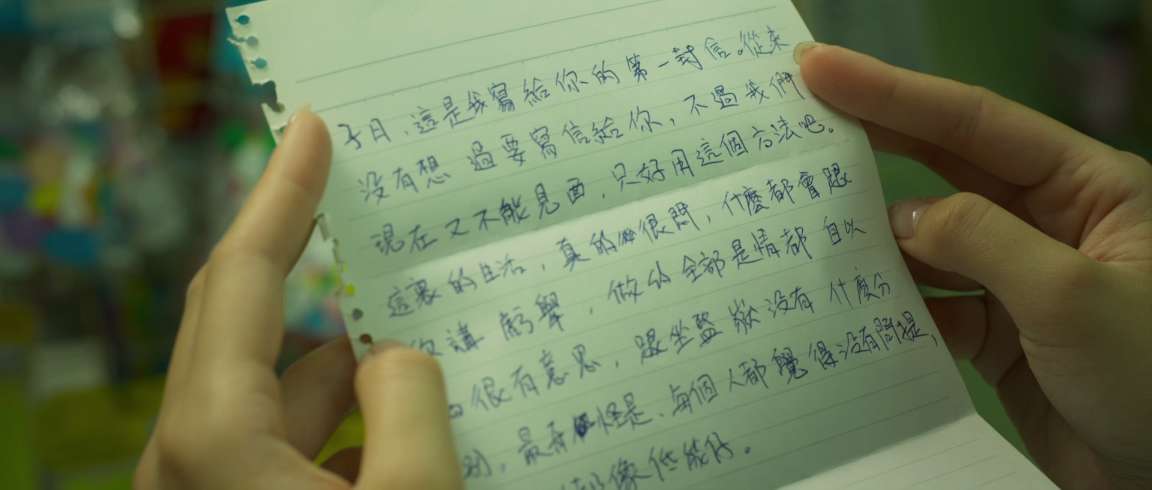 子月、這是我寫給你的第一封信。從來
沒有想 過要寫信給你，不過我們
現在又不能見面，只好用這個方法吧。
這裏的生活，真的很悶，什麼都會跟
你講 ，做的全部是情都自以
很有意思，跟坐監獄沒有 什麼分
別，最 怪是、每個人都覺得沒有問提，
像低能仔。